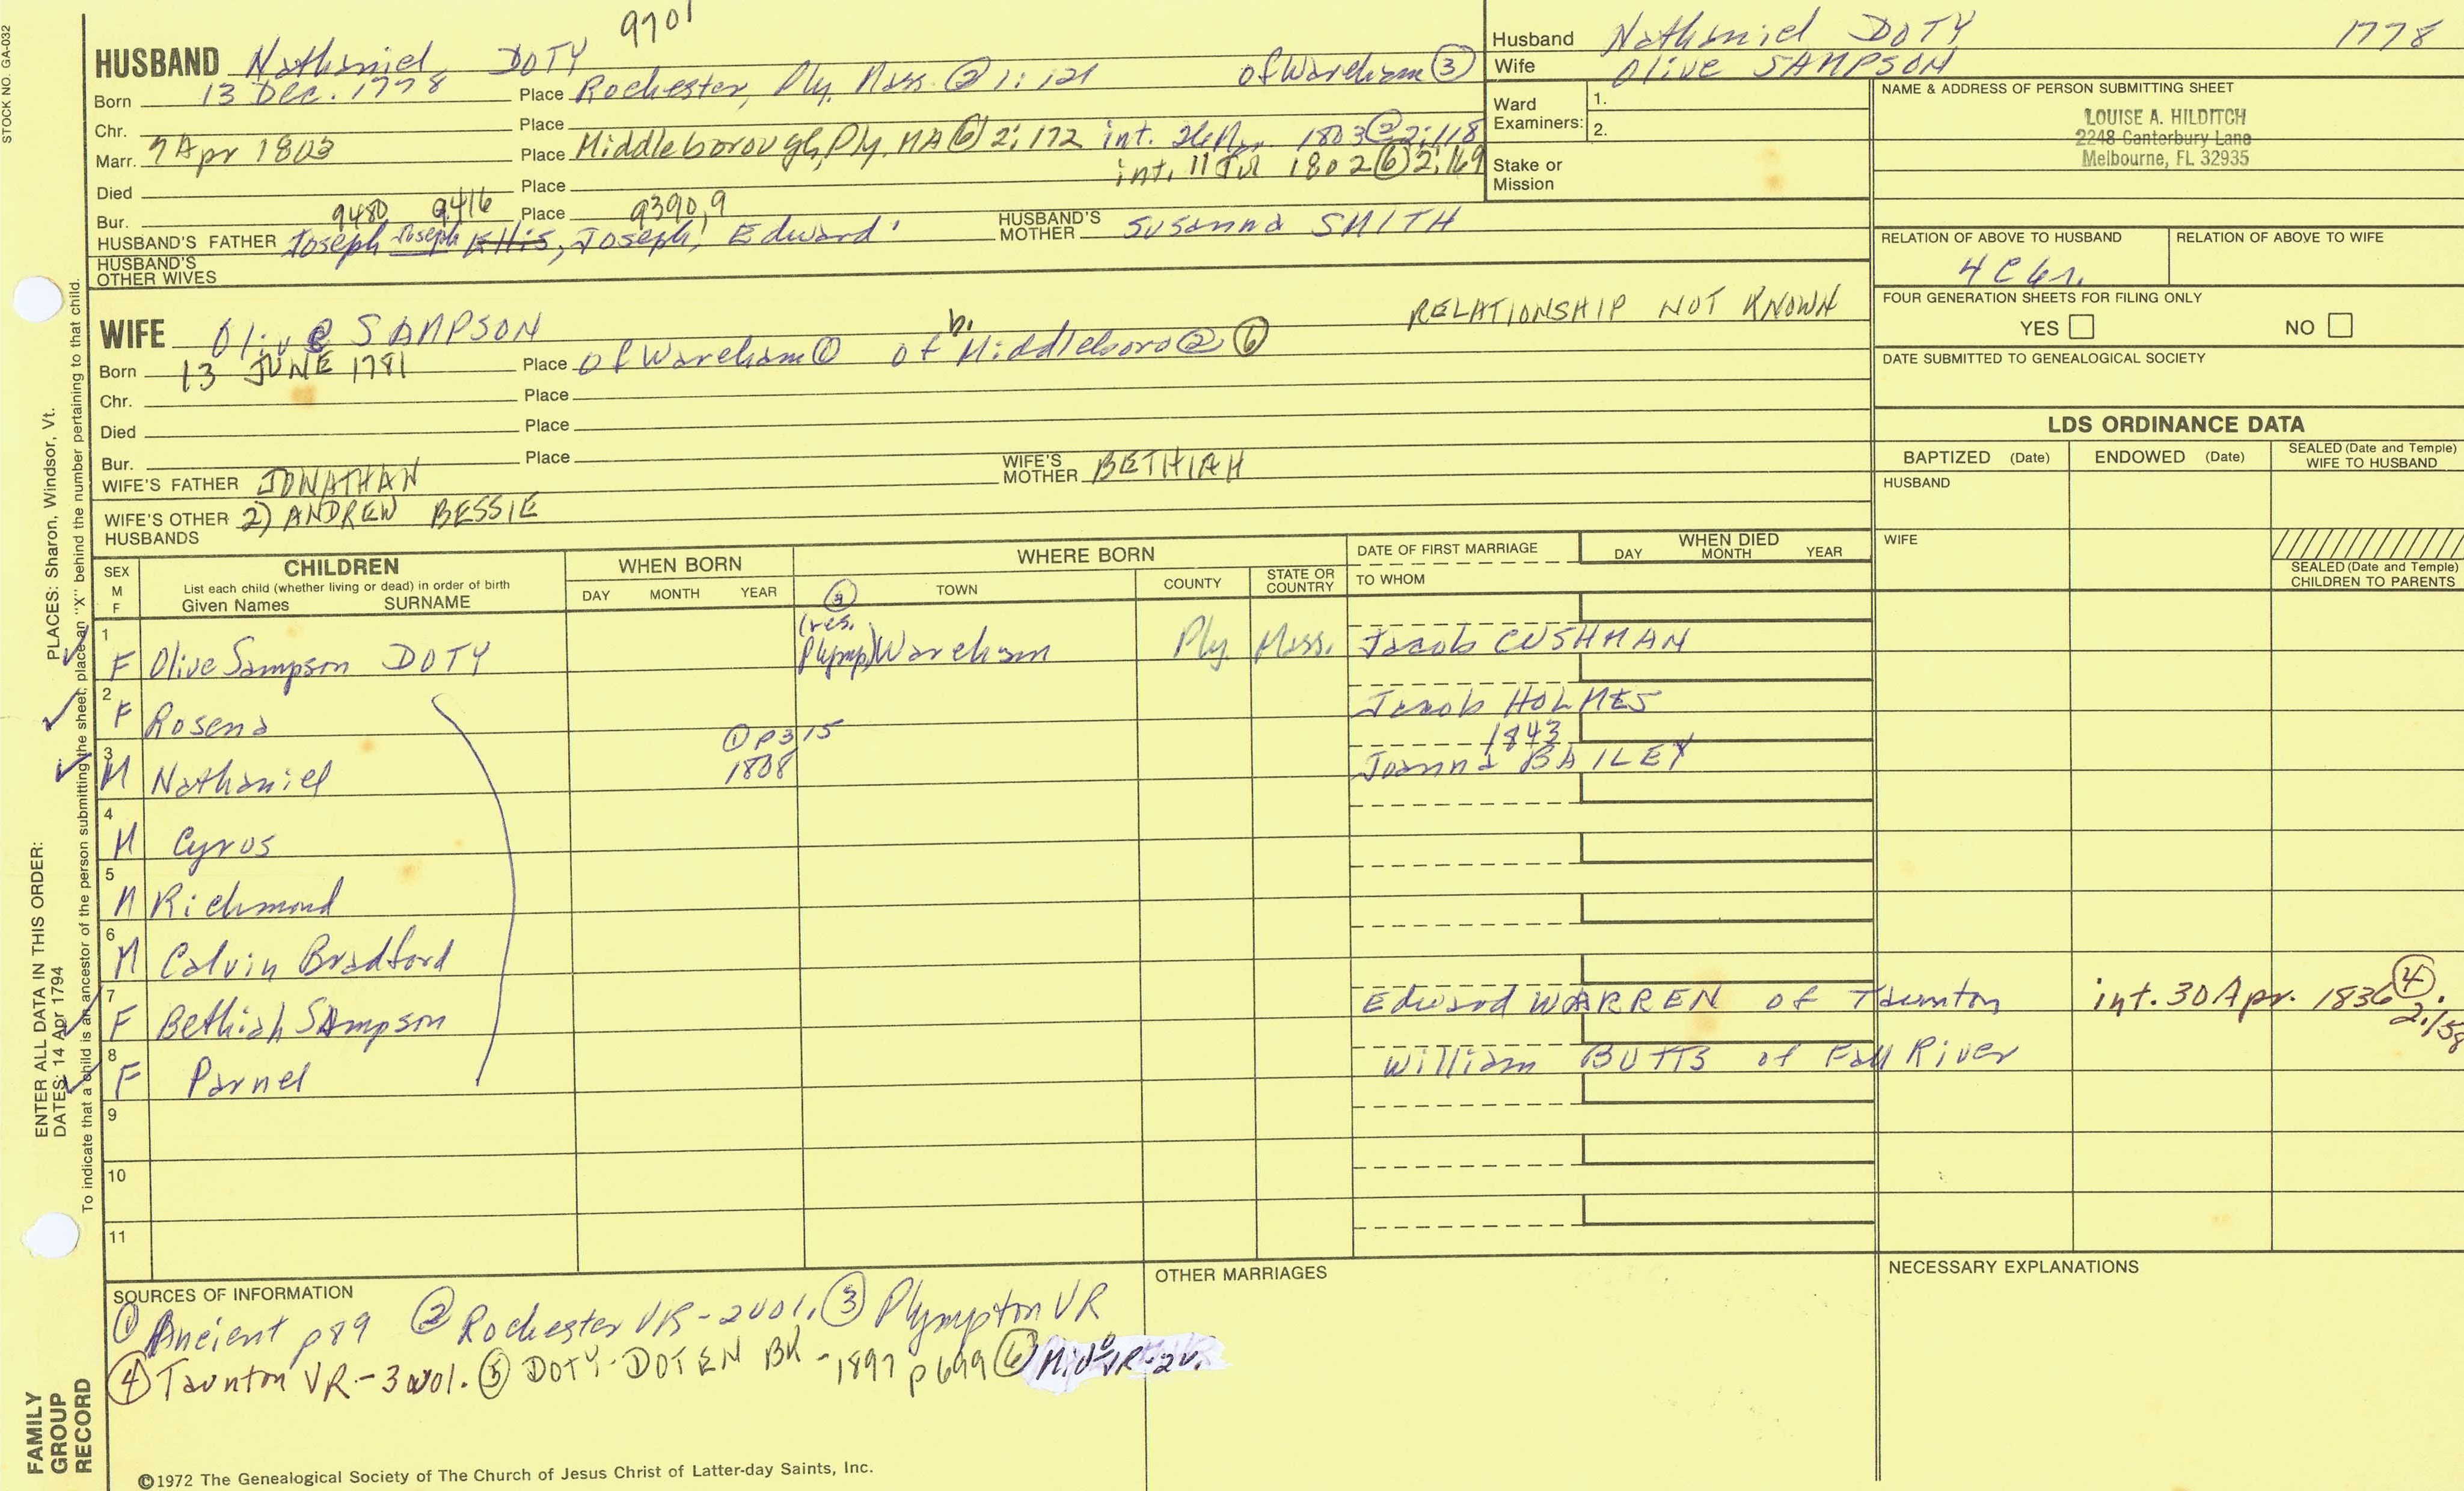 STOCK NO. GA-032
9701
HUSBAND Nathaniel DOTY
Born 13 Dec. 1778 Place Rochester, Ply. Mass. ② 1:121 of Wareham ③
Chr. Place
Marr. 7 Apr 1803 Place Middleborough, Ply. MA ⑥ 2:172 int. 1803 ② 2:118
int. 11 1802 ⑥ 2:169
Died Place
Bur. Place
9480 9416 9390,9
HUSBAND'S FATHER Joseph Joseph Ellis, Joseph, Edward' HUSBAND'S MOTHER Susanna SMITH
HUSBAND'S OTHER WIVES
RELATIONSHIP NOT KNOWN
WIFE Olive SAMPSON
Born 13 JUNE 1781 Place of Wareham ① of b. Middleboro ② ⑥
Chr. Place
Died Place
Bur. Place
WIFE'S FATHER JONATHAN WIFE'S MOTHER BETHIAH
WIFE'S OTHER HUSBANDS 2) ANDREW BESSIE
Husband Nathaniel DOTY 1778
Wife Olive SAMPSON
Ward Examiners: 1.
2.
Stake or Mission
NAME & ADDRESS OF PERSON SUBMITTING SHEET
LOUISE A. HILDITCH
2248 Canterbury Lane
Melbourne, FL 32935
RELATION OF ABOVE TO HUSBAND RELATION OF ABOVE TO WIFE
4 C 6r.
FOUR GENERATION SHEETS FOR FILING ONLY
YES NO
DATE SUBMITTED TO GENEALOGICAL SOCIETY
LDS ORDINANCE DATA
BAPTIZED (Date) ENDOWED (Date) SEALED (Date and Temple) WIFE TO HUSBAND
HUSBAND
WIFE
SEALED (Date and Temple) CHILDREN TO PARENTS
SEX M F
CHILDREN
List each child (whether living or dead) in order of birth
Given Names SURNAME
WHEN BORN
DAY MONTH YEAR
WHERE BORN
TOWN COUNTY STATE OR COUNTRY
DATE OF FIRST MARRIAGE
TO WHOM
WHEN DIED
DAY MONTH YEAR
③
1 F Olive Sampson DOTY (res. Plymp) Wareham Ply Mass. Jacob CUSHMAN
2 F Rosena Jacob HOLMES
3 M Nathaniel ① p315 1808 1843 Joanna BAILEY
4 M Cyrus
5 M Richmond
6 M Calvin Bradford
7 F Bethiah Sampson Edward WARREN of Taunton int. 30 Apr. 1836 ④. 2:158
8 F Parnel William BUTTS of Fall River
9
10
11
SOURCES OF INFORMATION
① Ancient p89 ② Rochester VR-2vol. ③ Plympton VR
④ Taunton VR-3vol. ⑤ DOTY-DOTEN BK-1897 p699 ⑥ Midº VR-2v.
OTHER MARRIAGES
NECESSARY EXPLANATIONS
©1972 The Genealogical Society of The Church of Jesus Christ of Latter-day Saints, Inc.
FAMILY GROUP RECORD
ENTER ALL DATA IN THIS ORDER:
DATES: 14 Apr 1794
PLACES: Sharon, Windsor, Vt.
To indicate that a child is an ancestor of the person submitting the sheet, place an "X" behind the number pertaining to that child.